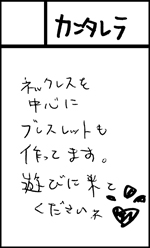 カンタレラ
ネックレスを
中心に
ブレスレットも
作ってます。
遊びに来て
くださいネ